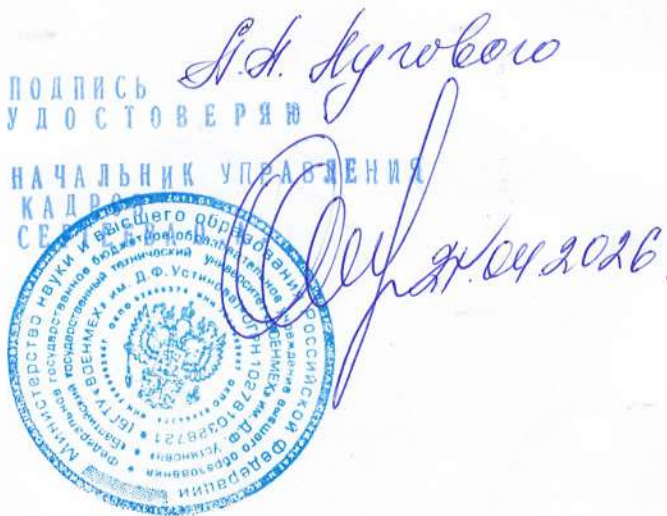 ПОДПИСЬ
УДОСТОВЕРЯЮ
НАЧАЛЬНИК УПРАВЛЕНИЯ
КАДРОВ
04.2026
Министерство науки и высшего образования Российской Федерации
Федеральное государственное бюджетное образовательное учреждение высшего образования
«Балтийский государственный технический университет «ВОЕНМЕХ» им. Д.Ф. Устинова»
(БГТУ «ВОЕНМЕХ» им. Д.Ф. Устинова) ОГРН 1027810328721